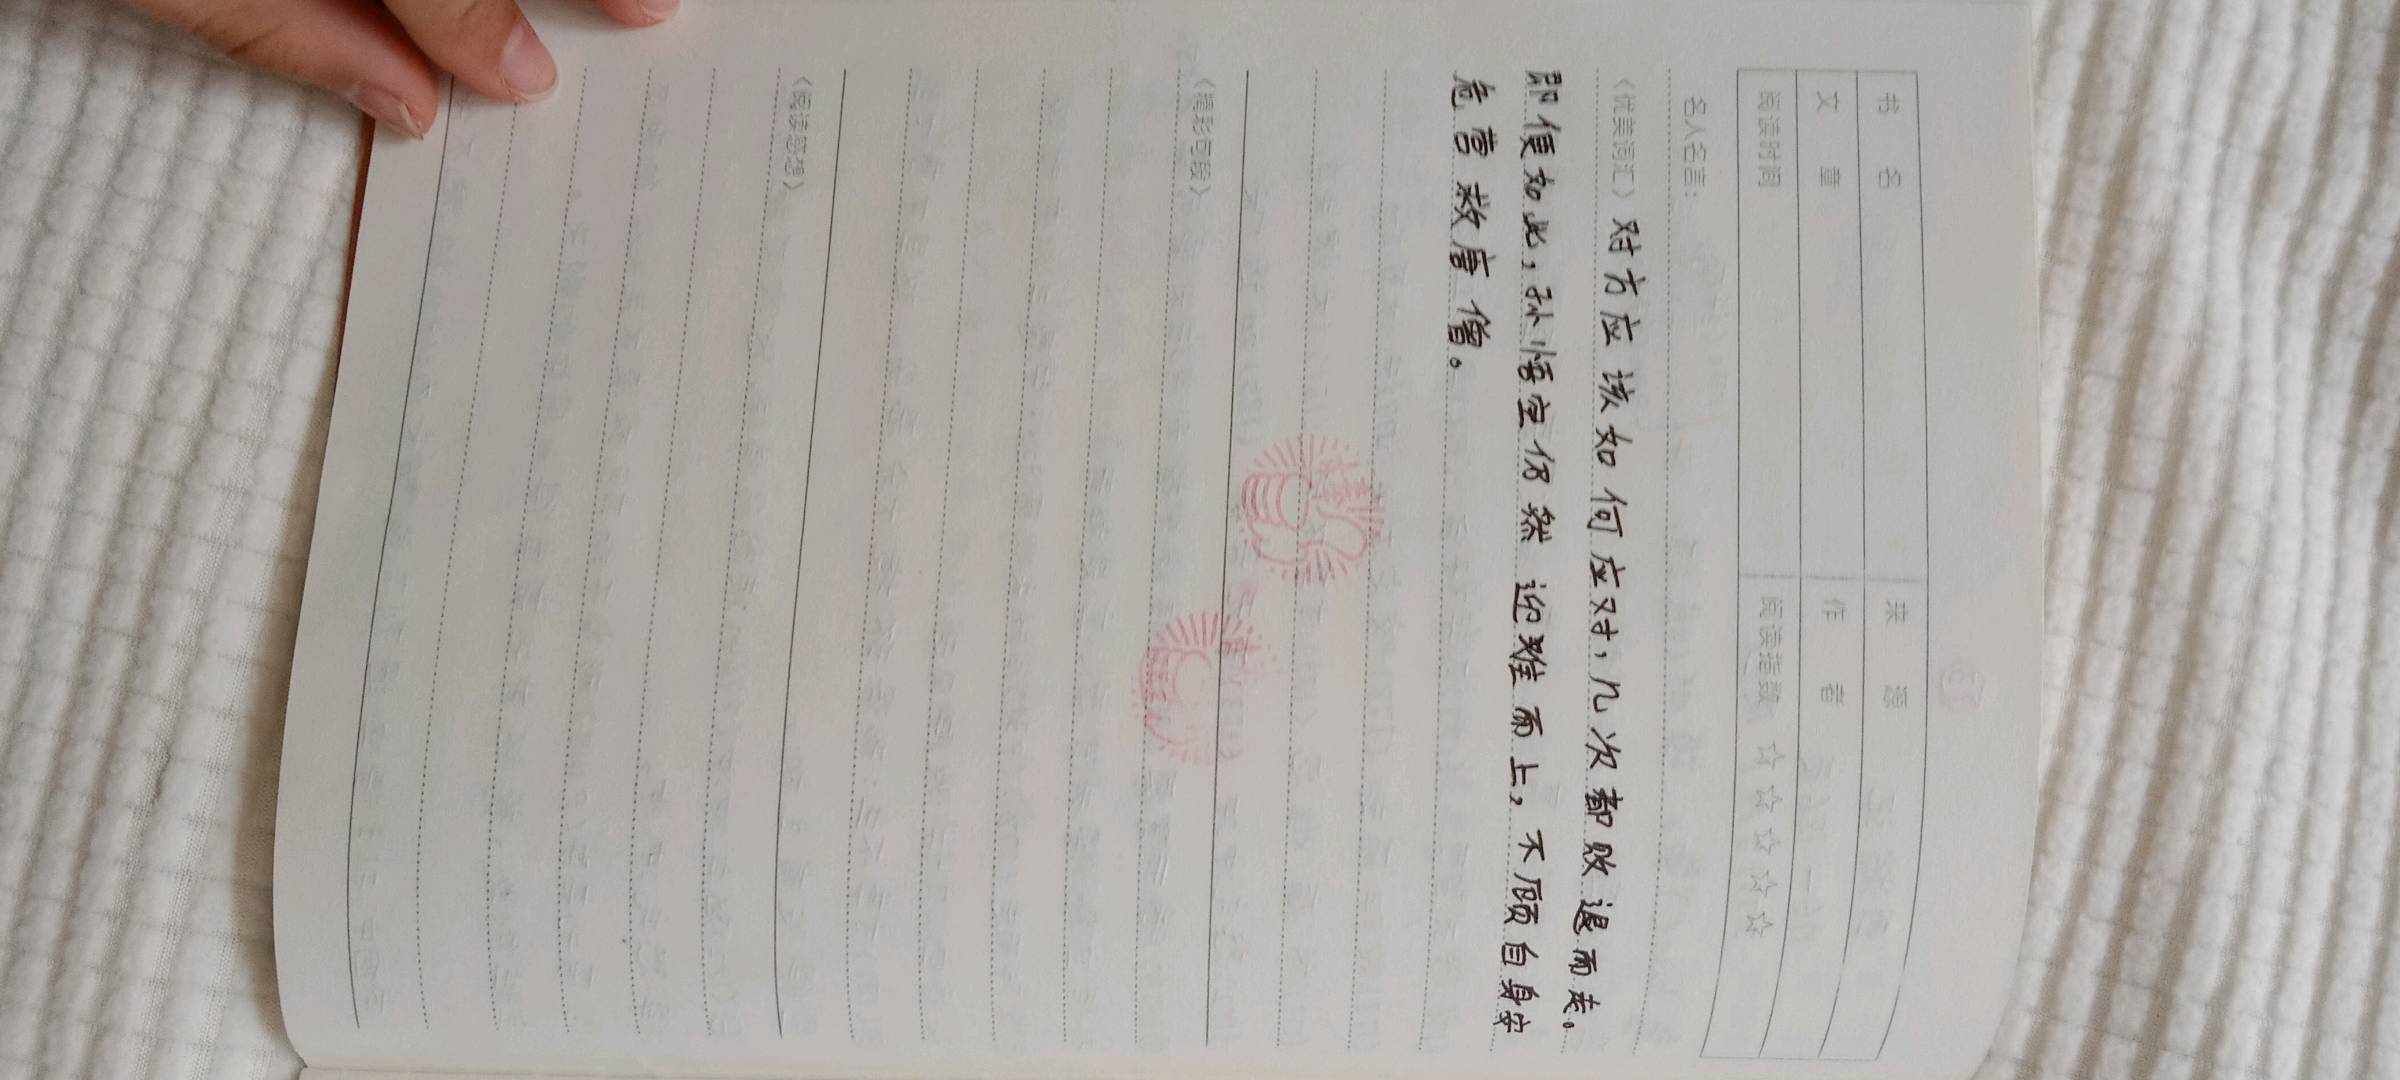 书 名 来 源
文 章 作 者
阅读时间 阅读指数 ☆☆☆☆☆
名人名言：
《优美词汇》对方应该如何应对，几次都败退而走。
即便如此，孙悟空仍然迎难而上，不顾自身安
危营救唐僧。
《精彩句段》
《阅读感想》